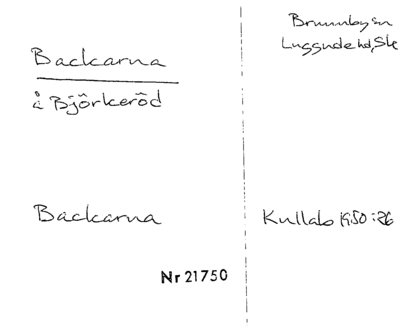 Backarna
å Björkeröd
Backarna
Brunnby sn
Luggude hd, Sk
Kullab 1950:26
Nr 21750